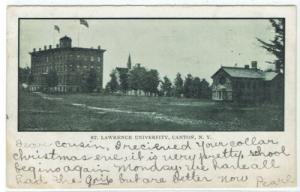 ST. LAWRENCE UNIVERSITY, CANTON, N. Y.
Dear cousin, I recieved your collar
christmas eve, it is very pretty, school
begins again monday. We have all
had the Grip but are better now Pearl